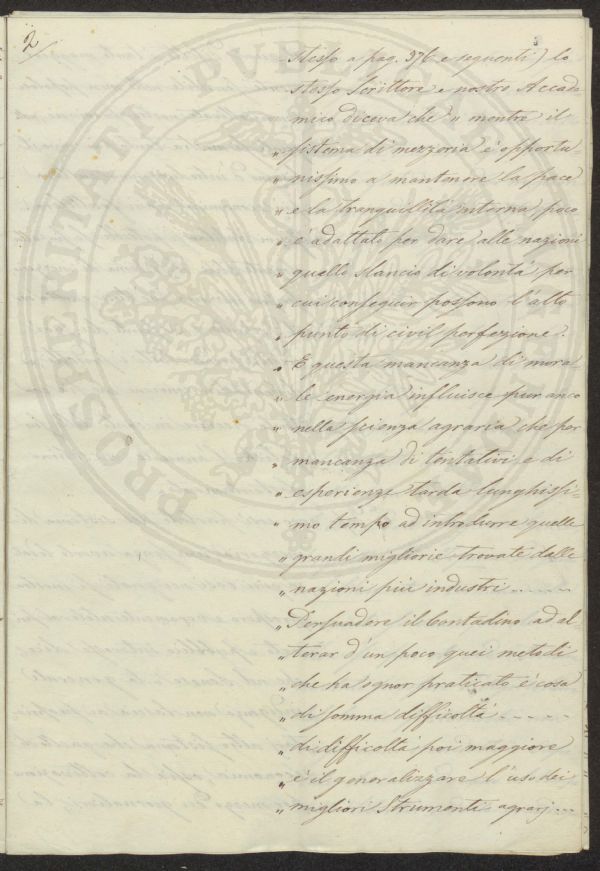 2
stesso a pag. 376 e seguenti) lo
stesso Scrittore e nostro Accade
mico diceva che " mentre il
" sistema di mezzeria è opportu-
" nissimo a mantenere la pace
" e la tranquillità interna poco
" è adattato per dare alle nazioni
" quello slancio di volontà per
" cui conseguir possono l'alto
" punto di civil perfezione.
" E questa mancanza di mora-
" le energia influisce pur anco
" nella scienza agraria che per
" mancanza di tentativi e di
" esperienze tarda lunghissi-
" mo tempo ad introdurre quelle
" grandi migliorie trovate dalle
" nazioni più industri .....
" Persuadere il Contadino ad al-
" terar d'un poco quei metodi
" che ha ognor praticato è cosa
" di somma difficoltà .....
" di difficoltà poi maggiore
" è il generalizzare l'uso dei
" migliori Strumenti agrarj ...
PROSPERITATI PUBLICAE